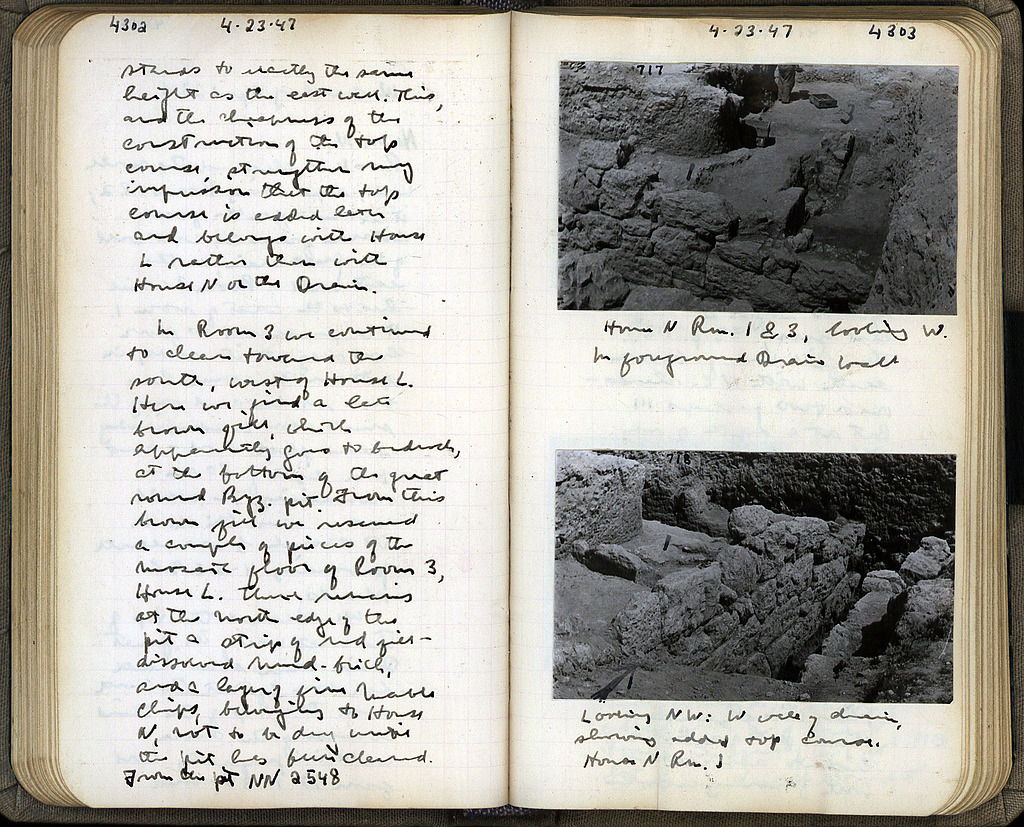 4302 4-23-47
stands to exactly the same
height as the east wall. This,
and the cheapness of the
construction of the top
course, strengthen my
impression that the top
course is added later
and belongs with House
L rather than with
House N or the Drain.
In Room 3 we continued
to clear toward the
south, west of House L.
Here we find a late
brown fill, which
apparently goes to bedrock,
at the bottom of the great
round Byz. pit. From this
brown fill we rescued
a couple of pieces of the
mosaic floor of Room 3,
House L. There remains
at the north edge of the
pit a strip of red fill -
dissolved mud-brick,
and a layer of fine marble
chips, belonging to House
N, not to be dug until
the pit has been cleaned.
From the pit NN 2548
4-23-47 4303
717
House N Rm. 1 & 3, looking W.
In foreground Drain wall
718
Looking NW: W wall of drain,
showing added top course.
House N Rm. 3